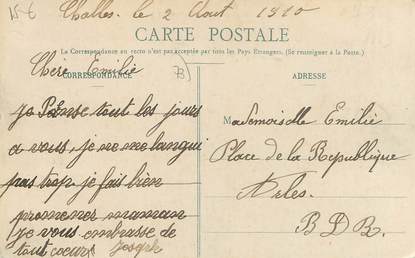 15 €
Challes. le 2 Aout 1910
CARTE POSTALE
La Correspondance au recto n'est pas acceptée par tous les Pays Etrangers. (Se renseigner à la Poste.)
Chère Emilie
CORRESPONDANCE
Je Pense tout les jours
a vous, je ne me langui
pas trop je fais bien
promener maman
Je vous embrasse de
tout coeurs Joseph
73
ADRESSE
Mademoiselle Emilie
Place de la Republique
Arles.
B D R.